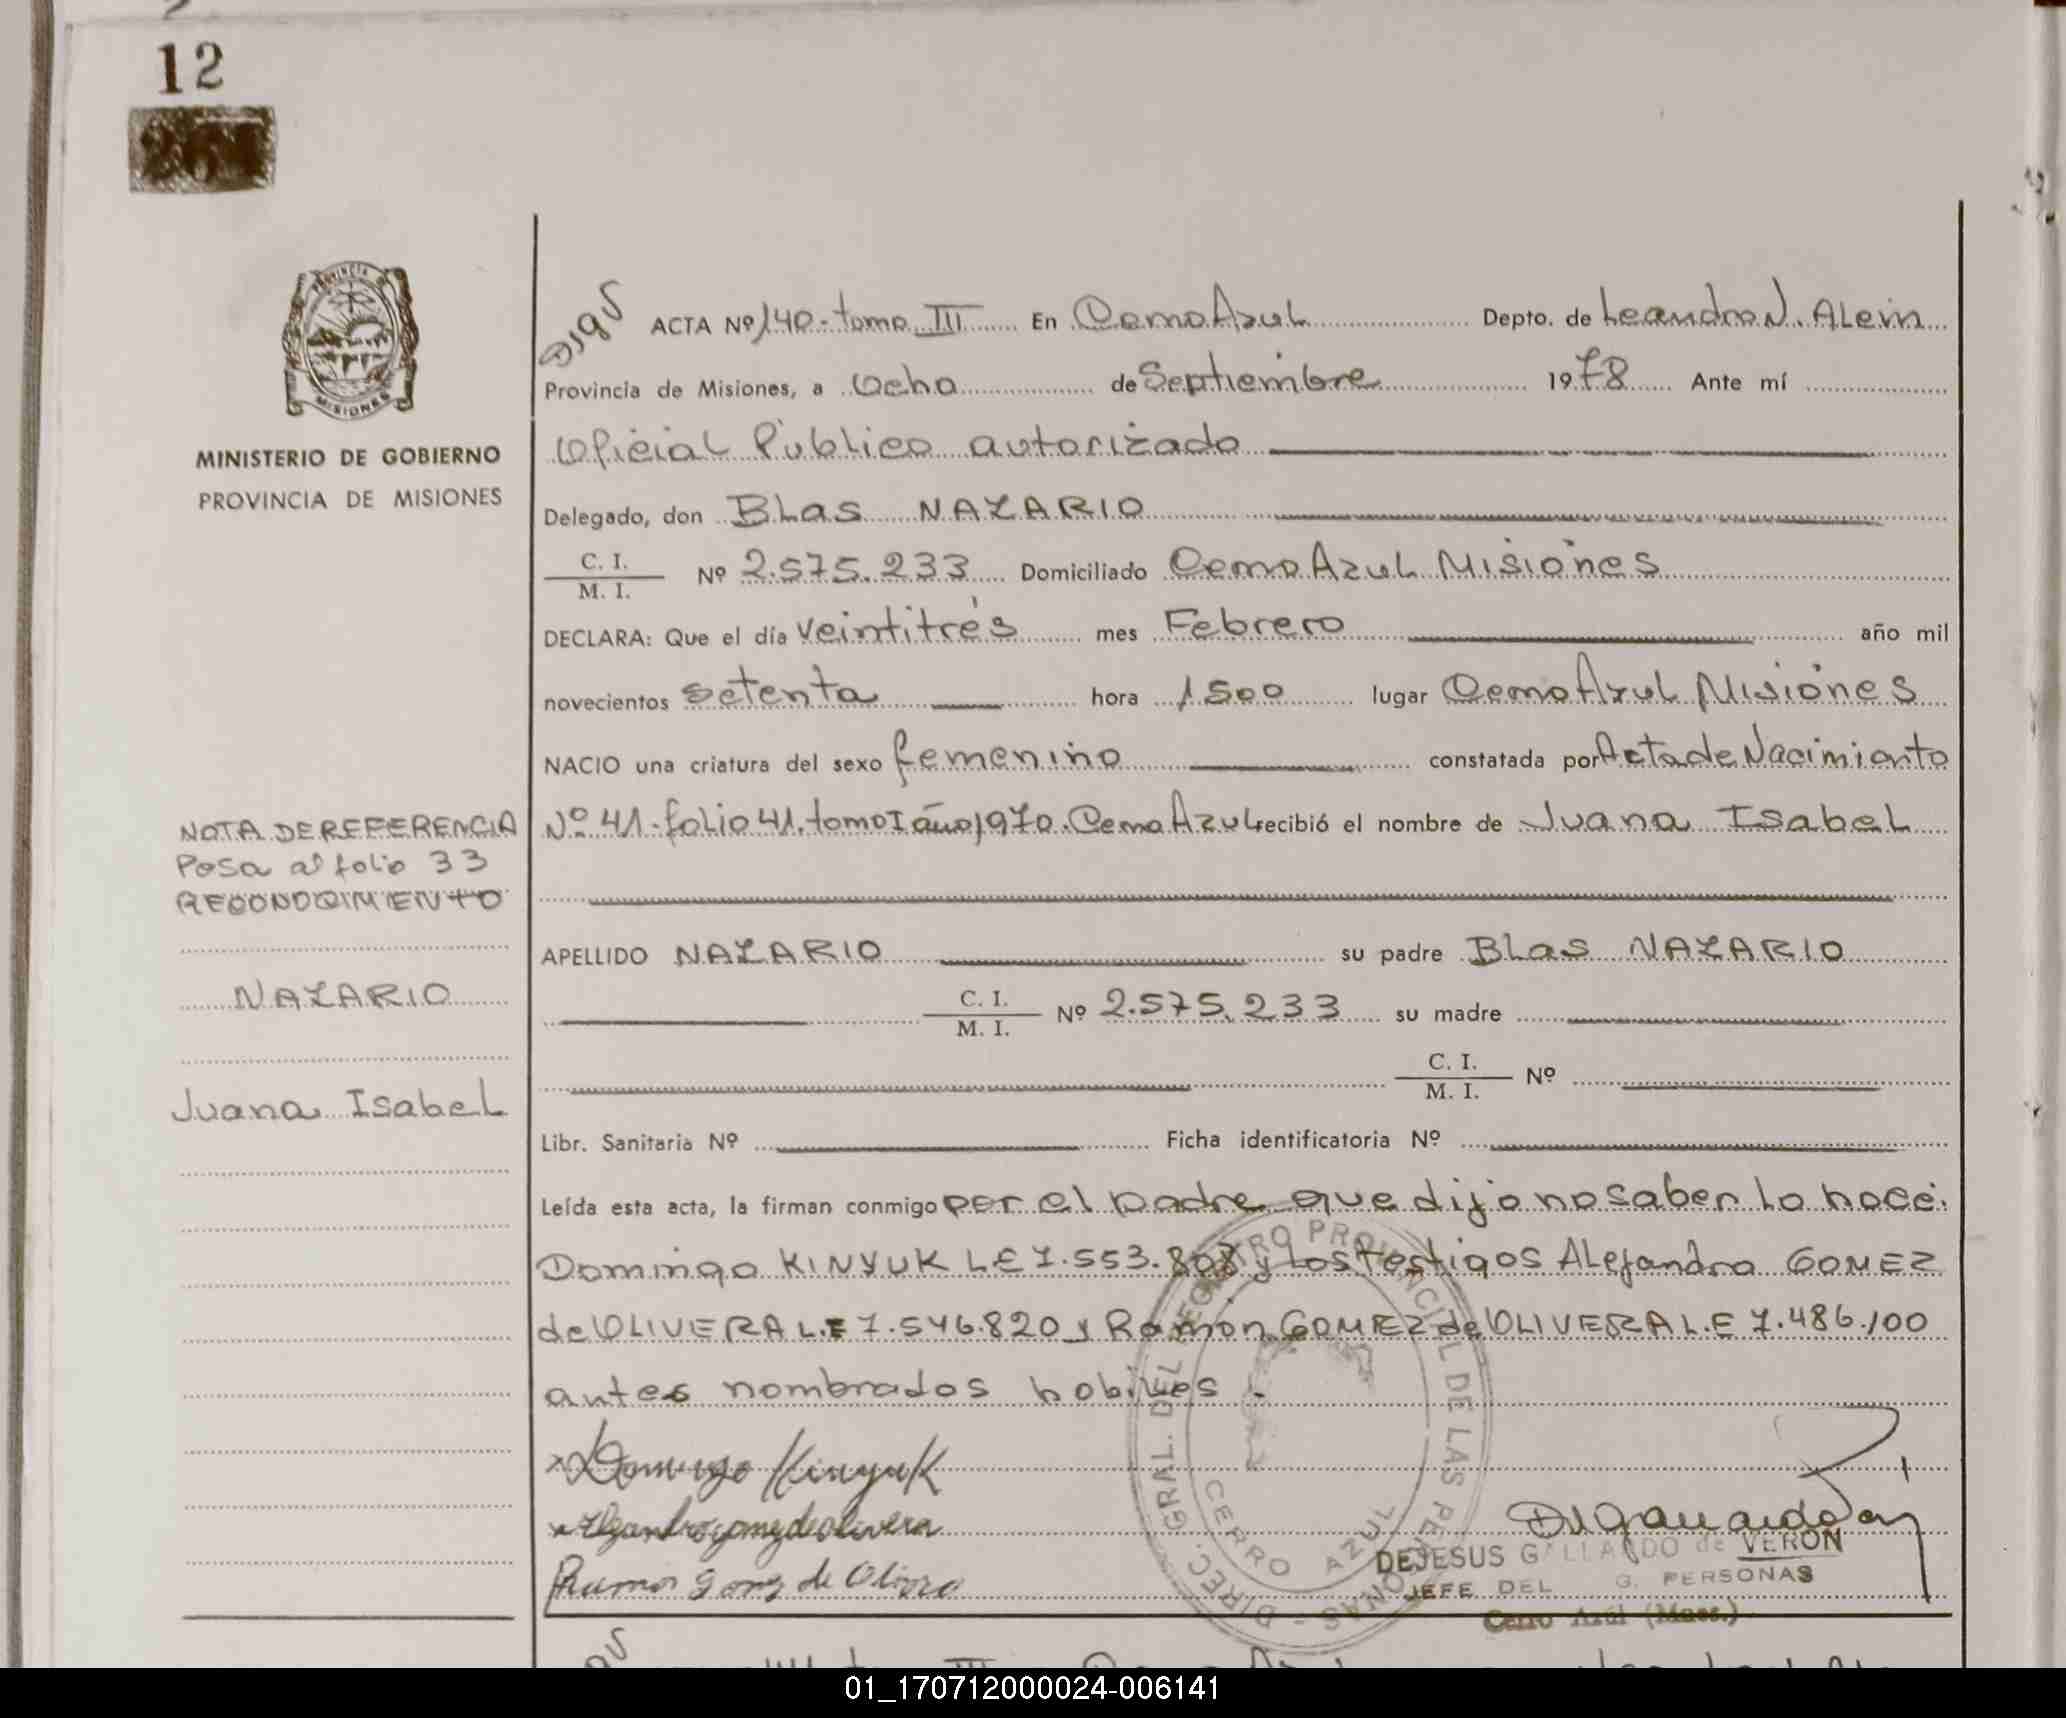 12
261
PROVINCIA
MISIONES
MINISTERIO DE GOBIERNO
PROVINCIA DE MISIONES
NOTA DE REFERENCIA
Pasa al folio 33
RECONOCIMIENTO
NAZARIO
Juana Isabel
DJGV ACTA Nº 140-tomo III En Cerro Azul Depto. de Leandro N. Alem
Provincia de Misiones, a Ocho de Septiembre 1978 Ante mí
Oficial Publico autorizado
Delegado, don Blas NAZARIO
C. I.
M. I. Nº 2.575.233 Domiciliado Cerro Azul Misiones
DECLARA: Que el día veintitrés mes Febrero año mil
novecientos setenta hora 1500 lugar Cerro Azul Misiones
NACIO una criatura del sexo femenino constatada por Acta de Nacimianto
Nº 41-folio 41. tomo I año 1970. Cerro Azul recibió el nombre de Juana Isabel
APELLIDO NAZARIO su padre Blas NAZARIO
C. I.
M. I. Nº 2.575.233 su madre
C. I.
M. I. Nº
Libr. Sanitaria Nº Ficha identificatoria Nº
Leída esta acta, la firman conmigo por el padre que dijo no saber lo hace:
Domingo KINYUK LE 7.553.808 y los testigos Alejandro GOMEZ
de OLIVERA L.E 7.546.820 y Ramon GOMEZ de OLIVERA L.E 7.486.100
antes nombrados habiles.
x Domingo Kinyuk
x Alejandro gomez de olivera
Ramon Gomz de Olivera
DIREC. GRAL. DEL REGISTRO PROVINCIAL DE LAS PERSONAS
CERRO AZUL
DEJESUS GALLARDO de VERON
JEFE DEL G. PERSONAS
Cerro Azul (Mnes.)
01_170712000024-006141